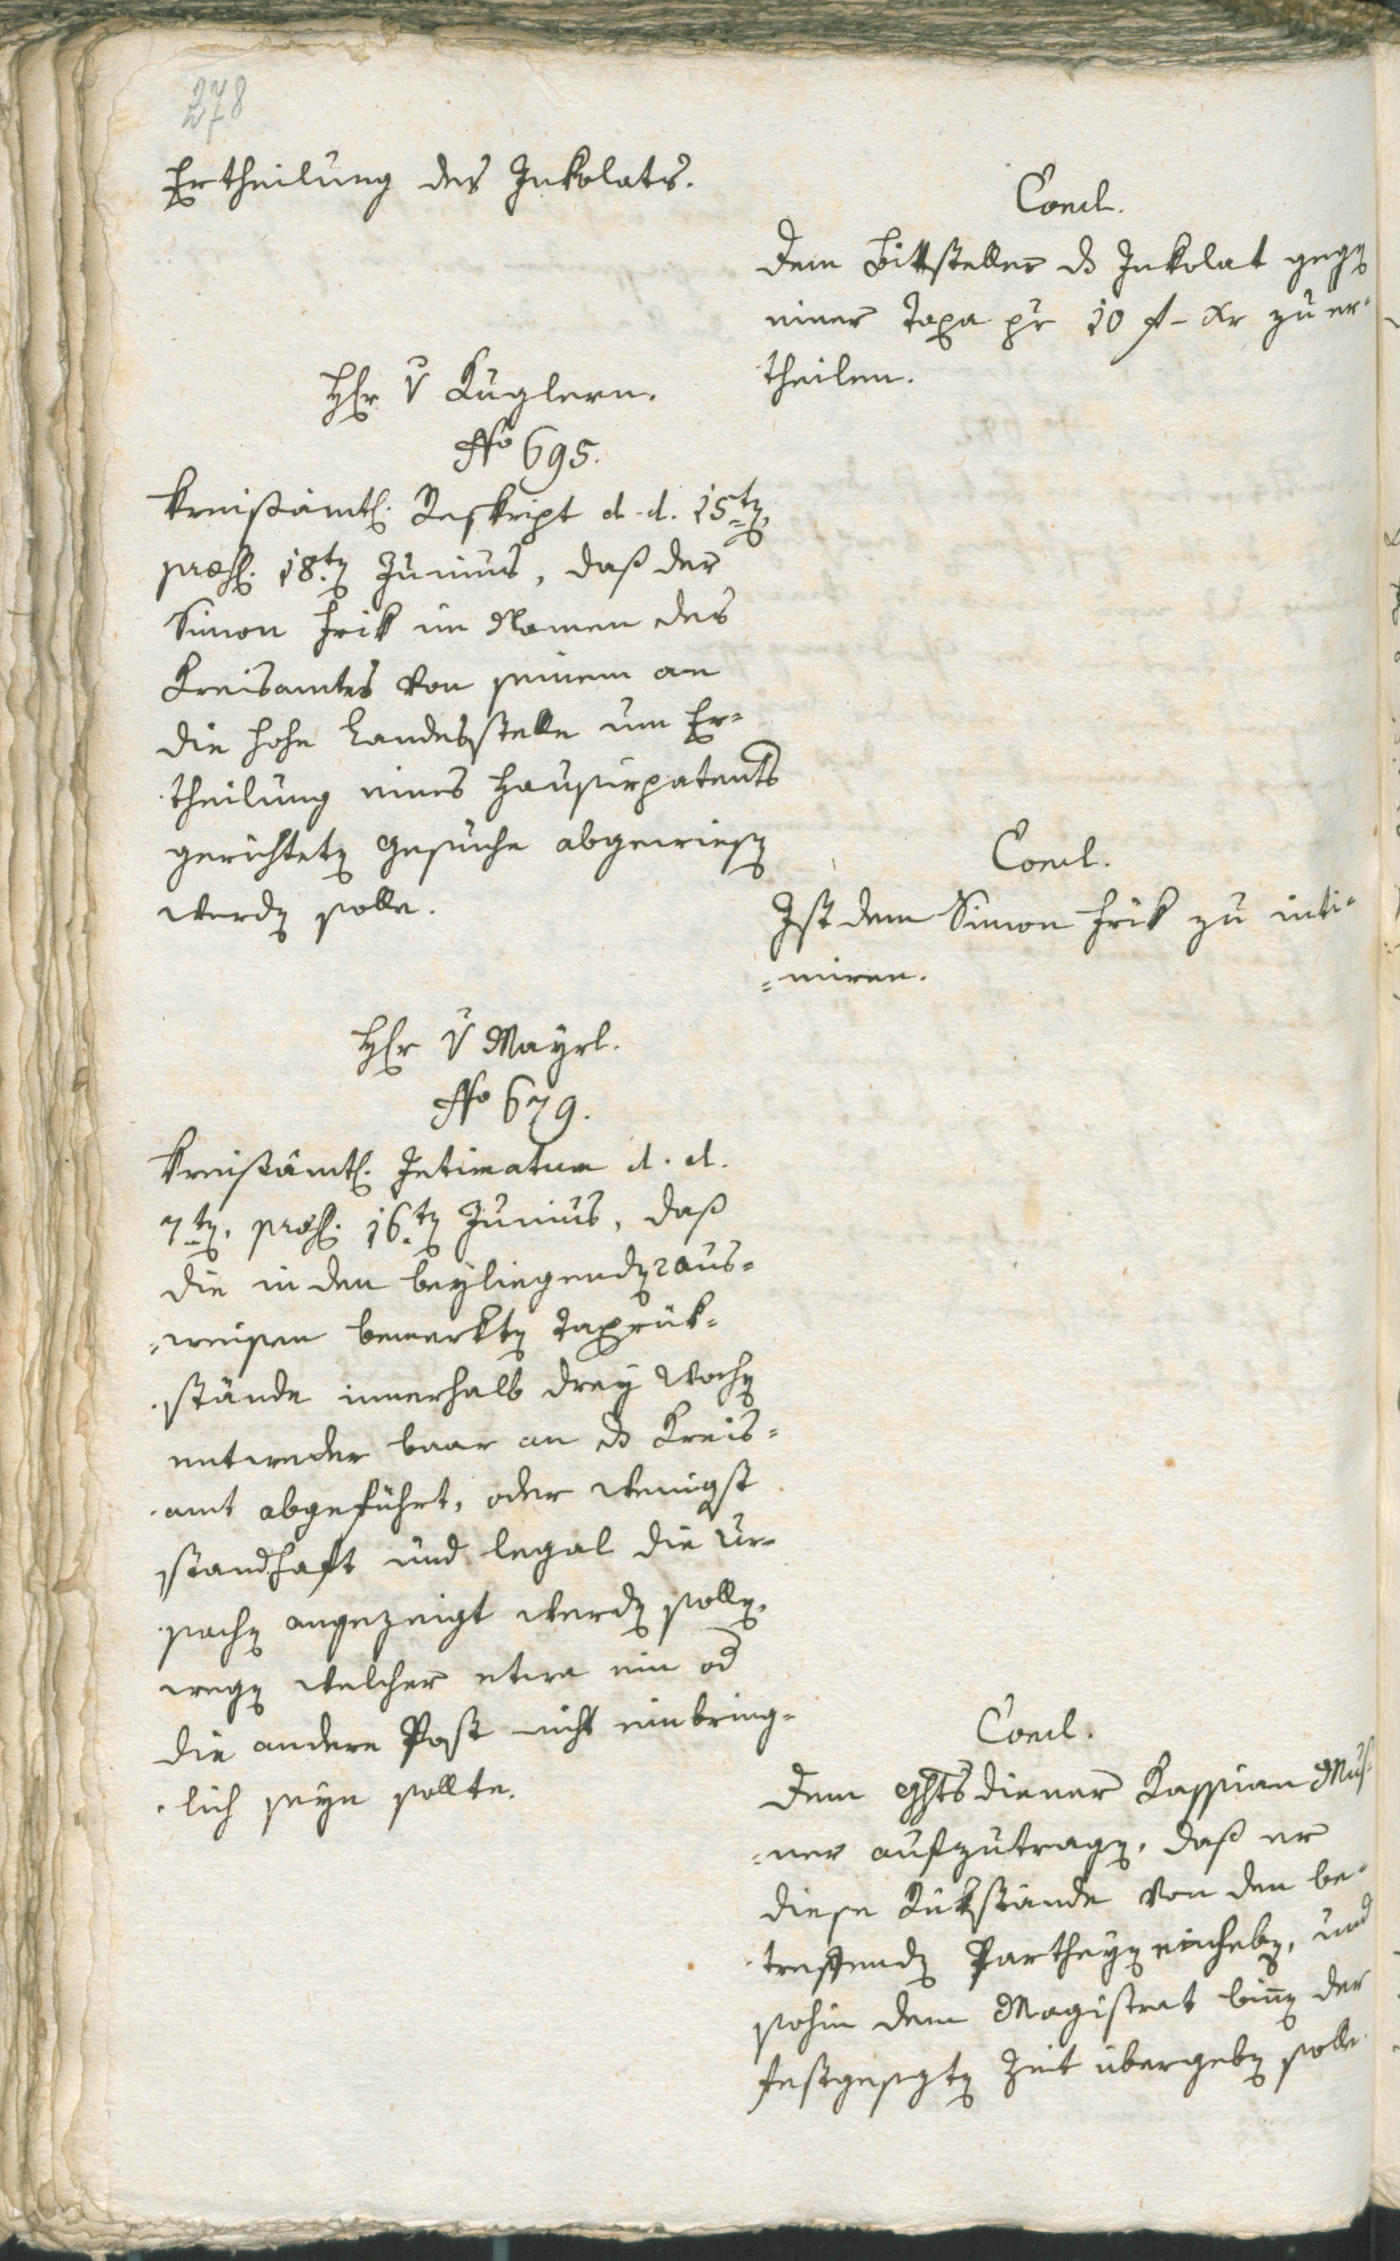 278
Ertheilung des Inkolats.
Concl.
dem Bittsteller ds Inkolat gegen
einer Taxa pr 10 f – Xr zu er-
theilen.
Hr v Kuglern.
No 695.
kreisämtl. Reskript d. d. 15ten,
præs. 18ten Junius, daß der
Simon Frik im Namen des
Kreisamtes von seinem an
die hohe Landesstelle um Er=
theilung eines Hausirpatents
gerichteten Gesuche abgewiesen
werden solle.
Concl.
Ist dem Simon Frik zu inti=
=miren.
Hr v Mayrl.
No 679.
kreisämtl. Intimatum d. d.
7ten, præs. 16ten Junius, daß
die in den beyliegenden 2 aus=
=weisen bemerkten Taxrük=
stände innerhalb drey Wochen
entweder baar an ds Kreis=
amt abgeführt, oder wenigst
standhaft und legal die Ur=
sachen angezeigt werden sollen,
wegen welcher etwa ein od
die andere Post nicht einbring=
lich seyn sollte.
Concl.
dem Ghtsdiener Kassian Mus=
=ner aufzutragen, daß er
diese Rükstände von den be=
treffenden Partheyen einheben, und
sohin dem Magistrat binnen der
festgesezten Zeit übergeben solle.